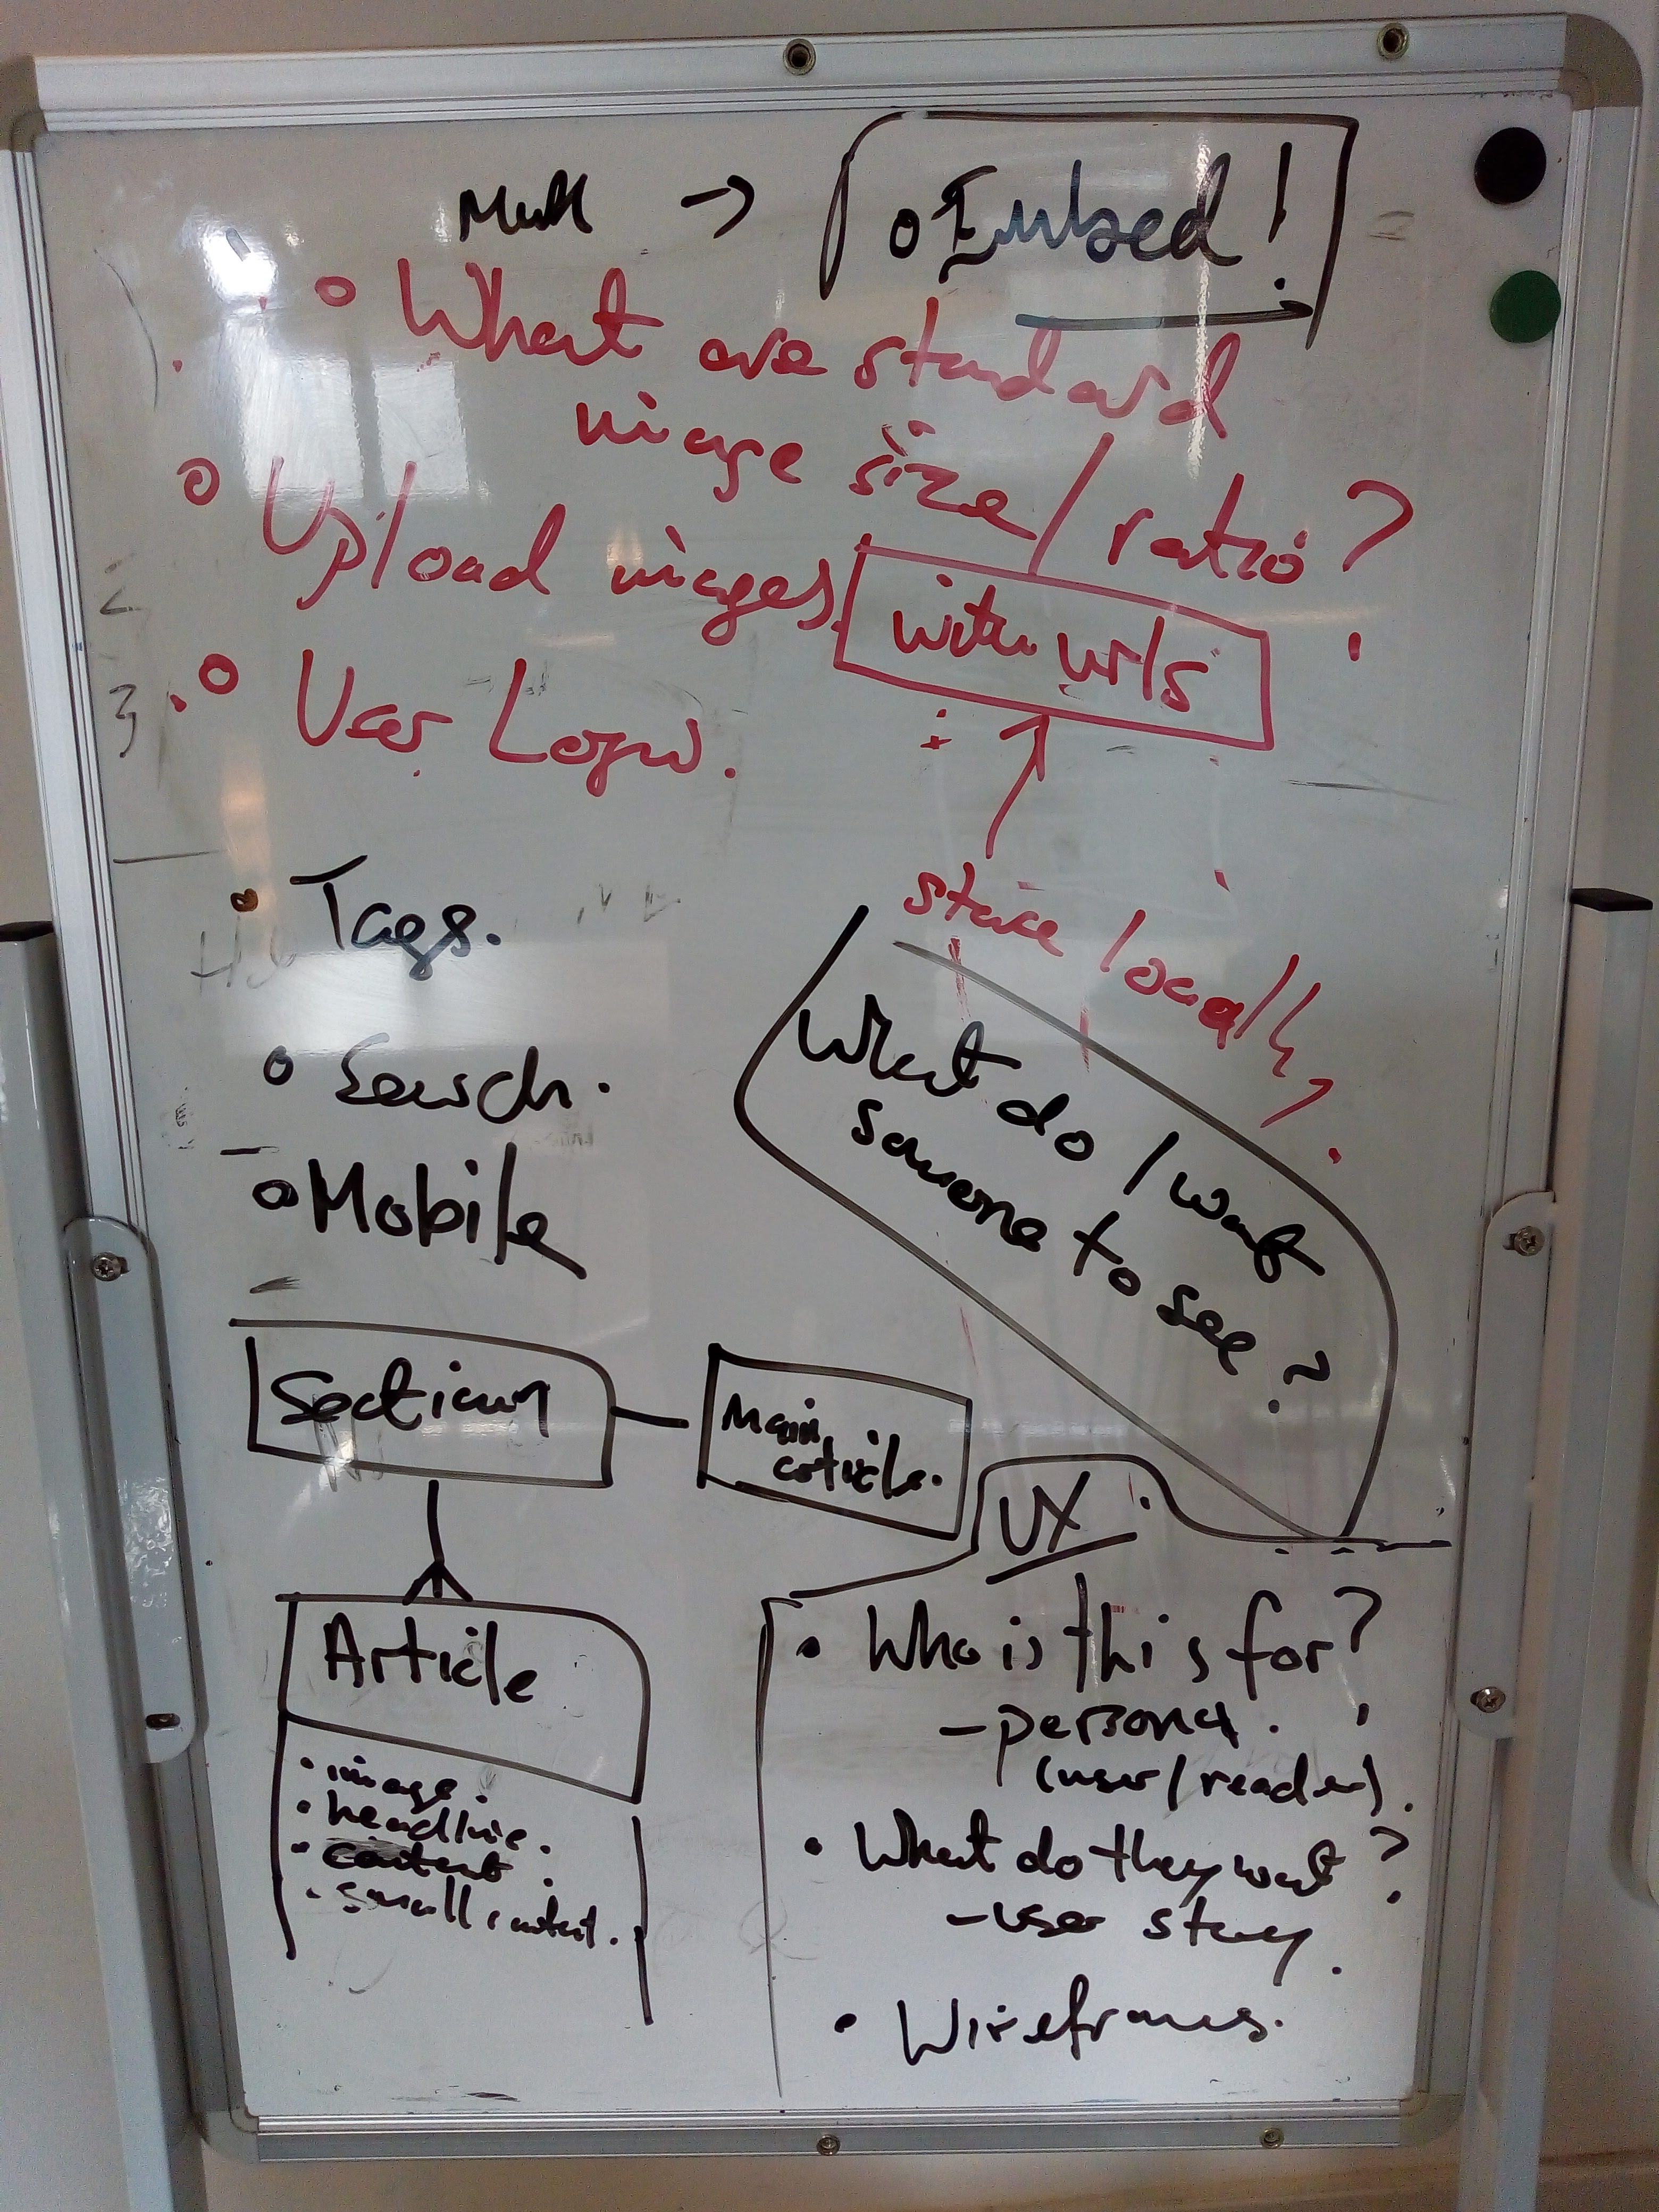 → oEmbed!
What are standard
image size / ratio?
Upload images. with urls
User Login.
store locally?
Tags.
Search.
Mobile
What do I want
someone to see?
Section
Main
article.
Article
• image.
• headline.
• content.
• small content.
UX
• Who is this for?
- persona.
(user/reader).
• What do they want?
- user story.
• Wireframes.